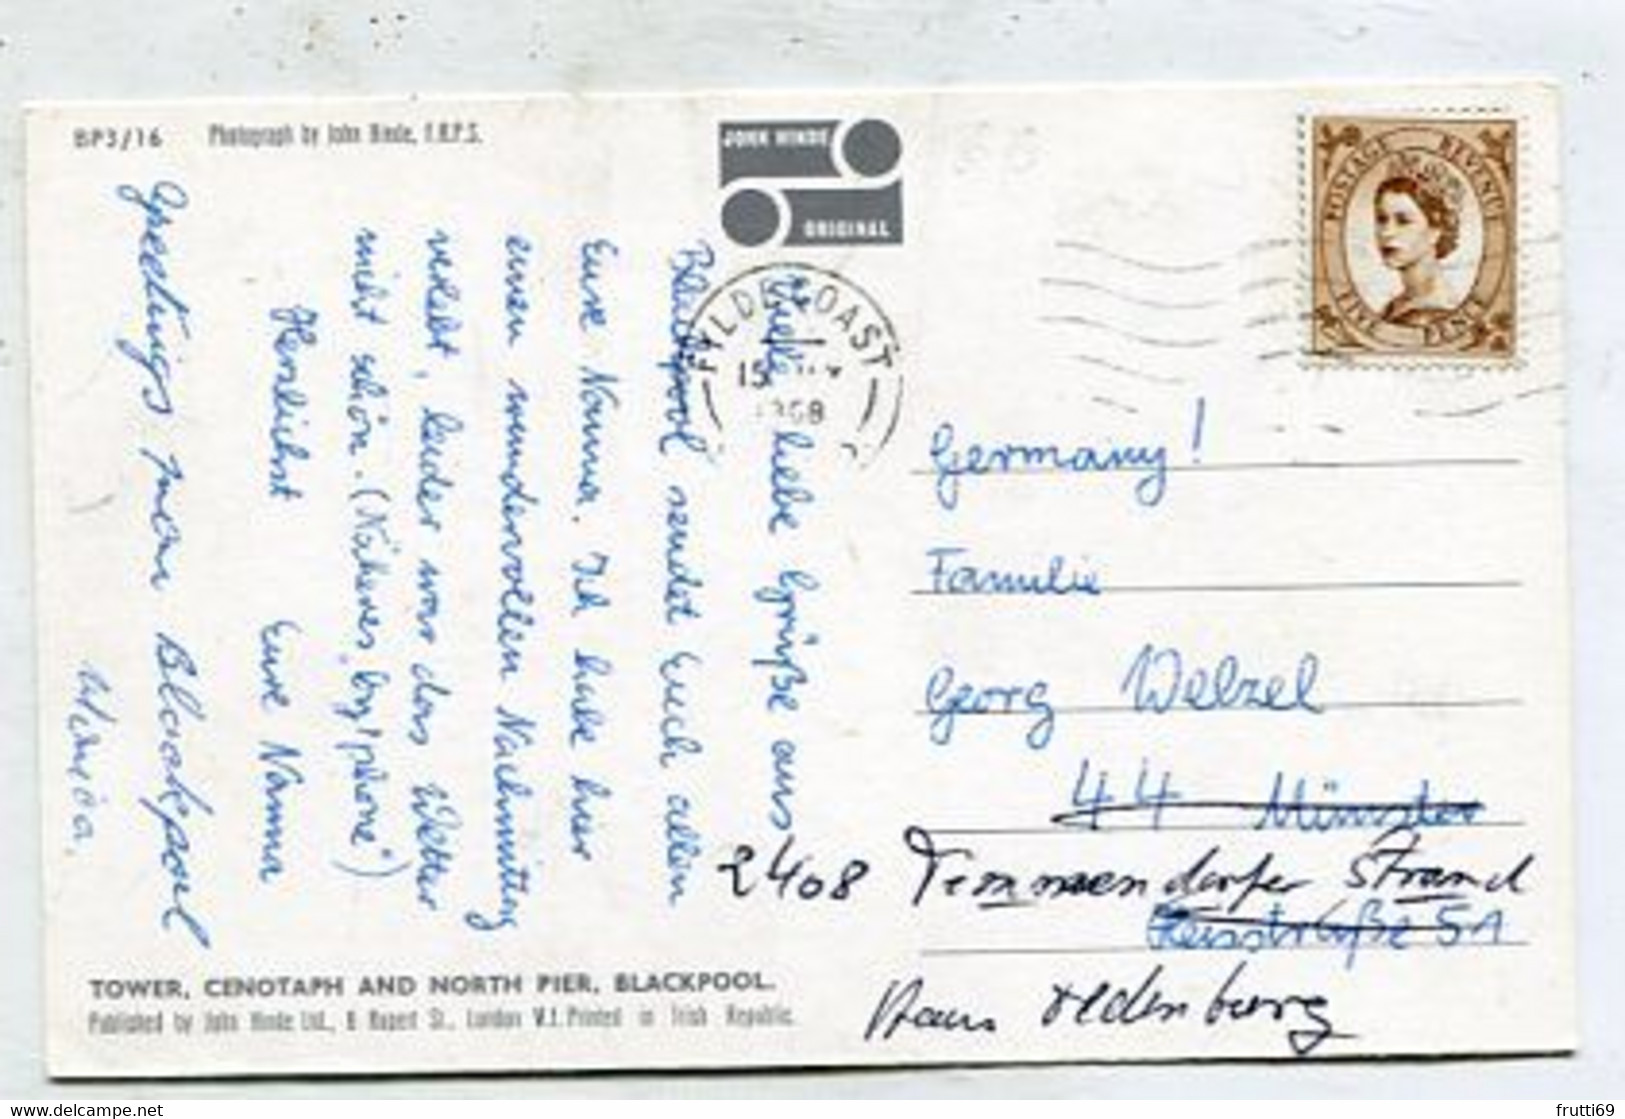 BP3/16 Photograph by John Hinde, F.R.P.S.
JOHN HINDE
ORIGINAL
POSTAGE REVENUE
FIVE PENCE
FYLDE COAST
15
1968
Viele liebe Grüße aus
Blackpool sendet Euch allen
Eure Nanna. Ich habe hier
einen wundervollen Nachmittag
verlebt, leider war das Wetter
nicht schön. (Näheres „by 'phone“)
Herzlichst Eure Nanna
Greetings from Blackpool
Germany!
Familie
Georg Welzel
44 Münster
2408 Timmendorfer Strand
51
Haus Oldenburg
TOWER, CENOTAPH AND NORTH PIER, BLACKPOOL.
Published by John Hinde Ltd., 8 Rupert St., London W.1. Printed in Irish Republic.
frutti69